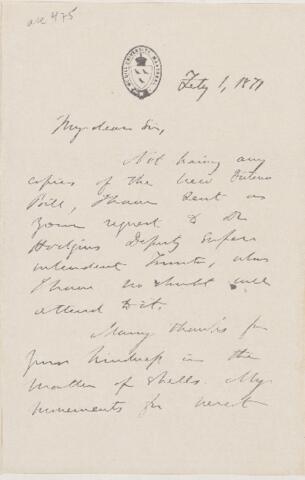 ac 475
McGILL UNIVERSITY MONTREAL
Feby 1, 1871
My dear Sir,
Not having any
copies of the new Ontario
Bill, I have sent on
your request to Dr
Hodgins Deputy Super
intendent Toronto, who
I have no doubt will
attend to it.
Many thanks for
your kindness in the
matter of shells. My
movements for next